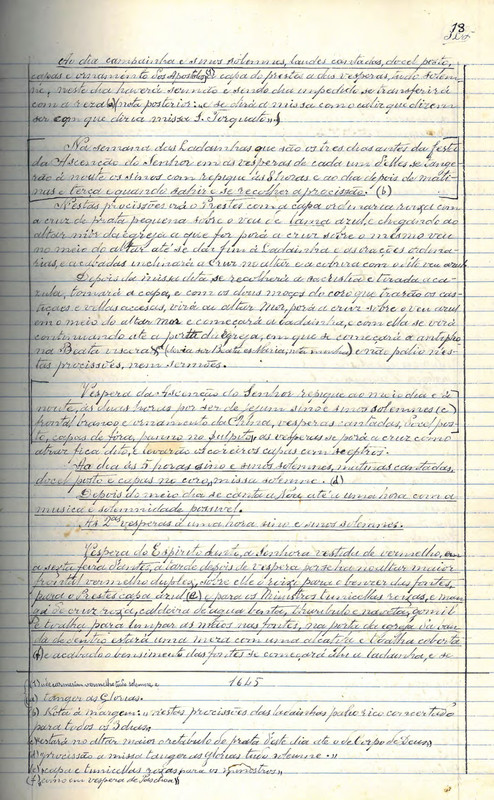 18
Ao dia campainha e sinos solemnes, laudes cantadas, docel posto,
capas e ornamento dos Apostolos, capa de prestes a duas vesperas, tudo solem-
ne, neste dia haverá sermão e sendo dia impedido se transferirá
com a reza (nota posterior: e se dirá a missa como
ser com que diria missa S. Torquato)
Na semana das Ladainhas que são os tres dias antes da festa
da Ascenção do Senhor em as vesperas de cada um delles se tange-
rão á noute os sinos com repique ás 8 horas e ao dia depois de mati-
nas e terça e quando sahir e se recolher a procissão. (b)
Nestas procissões irá o Prestes com a capa ordinaria roxa e com
a cruz de prata pequena sobre o veu e tama azul, e chegando ao
altar mór da egreja a que for porá a cruz sobre o mesmo veu
no meio do altar até se dar fim á Ladainha e as orações ordina-
rias, e acabadas inclinará a Cruz no altar e a cobrirá com o dito veu azul.
Depois da missa dita, se recolherá á sacristia e tirada a ca-
sula, tomará a capa, e com os dois moços do coro que trarão os cas-
tiçaes e vellas acesas, virá ao altar Mór, porá a cruz sobre o veu azul
em o meio do altar mor e começará a Ladainha, e com ella se virá
continuando até a porta da egreja, em que se começará a antipho-
na Beata viscera (devia ser Beata es Maria, nota minha) e não palio nes-
tas procissões, nem sermões.
Vespera da Ascenção do Senhor repique ao meio dia e á
noute, ás duas horas por ser de jejum sino e sinos solemnes (c)
frontal branco e ornamento da China, vesperas cantadas, docel pos-
to, capas de fóra, panno no pulpito, as vesperas se porá a cruz como
atraz fica dito, e levarão os coreiros capas com sceptros.
Ao dia ás 5 horas sino e sinos solemnes, matinas cantadas,
docel posto e capas no coro, missa solemne. (d)
Depois do meio dia se canta a Nôa até a uma hora com a
musica e solemnidade possivel.
As 2.as vesperas á uma hora sino e sinos solemnes.
Vespera do Espirito Santo, a Senhora vestida de vermelho, em
a sexta feira Santo, á tarde depois de vespera, por se ha no altar maior
frontal vermelho duplex, sobre elle o roixo para o benzer das fontes,
para o Prestes capa azul (e) e para os Ministros tunicellas roixas, e man-
ga de cruz roxa, caldeira de agua benta, thuribulo e naveta, gomil
e toalha para limpar as mãos nas fontes, na porta da egreja da ban-
da de dentro estará uma meza com uma alcatifa e toalha coberta
(f) e acabado o benzimento das fontes se começará alli a ladainha, e se
1645
(a) tanger as Glorias.
(b) Nota á margem: "nestas procissões das ladainhas palio rico concertado
para todos os
(c) estará no altar maior o retabulo de prata deste dia até o de Corpo de Deus"
(d) procissão a missa tanger as glorias tudo solemne."
(e) capa e tunicellas roxas para os ministros"
(f) como em vespera de Paschoa"